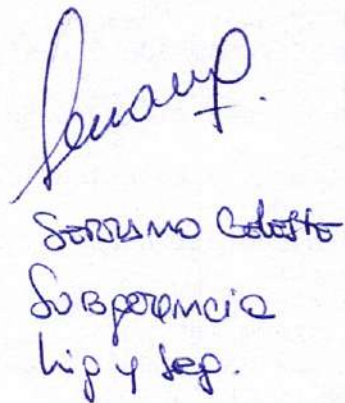 Serrano Celeste
Subgerencia
Hig y Seg.